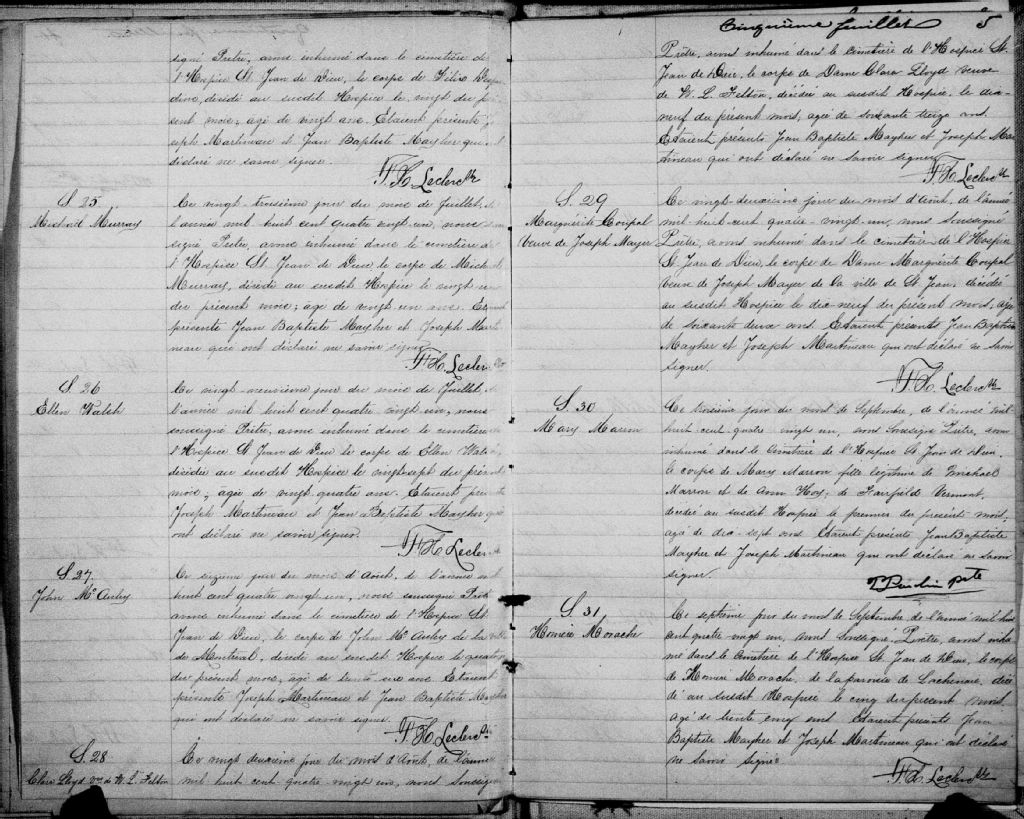 signé Prêtre, avons inhumé dans le cimetière de
l'Hospice St. Jean de Dieu, le corps de
décédé au susdit Hospice le vingt du pré
sent mois, agé de vingt ans. Etaient présents
Joseph Martineau et Jean Baptiste Mayher qui
déclaré ne savoir signer.
F. X. Leclerc Ptr
S. 25
Michael Murray
Ce vingt-troisième jour du mois de Juillet, de
l'année mil huit cent quatre vingt-un, nous
signé Prêtre, avons inhumé dans le cimetière de
l'Hospice St. Jean de Dieu le corps de Mich
Murray, décédé au susdit Hospice le vingt un
du présent mois; agé de vingt un ans. Etaient
présents Jean Baptiste Mayher et Joseph Marti
neau qui ont déclaré ne savoir signer
F. X. Leclerc
S. 26
Ellen Walsh
Ce vingt-neuvième jour du mois de Juillet, de
l'année mil huit cent quatre vingt un, nous
soussigné Prêtre, avons inhumé dans le cimetière de
l'Hospice St Jean de Dieu le corps de Ellen Walsh,
décédée au susdit Hospice le vingt-sept du présent
mois; agée de vingt quatre ans. Etaient
Joseph Martineau et Jean Baptiste Mayher qui
ont déclaré ne savoir signer.
F X Leclerc
S. 27.
John McAuley
Ce sizième jour du mois d'Août, de l'année mil
huit cent quatre vingt-un, nous soussigné Prêtre
avons inhumé dans le cimetière de l'Hospice St.
Jean de Dieu, le corps de John McAuley de la ville
de Montréal, décédé au susdit Hospice le quatre
du présent mois, agé de trente ans Etaient
présents Joseph Martineau et Jean Baptiste Mayher
qui ont déclaré ne savoir signer.
F. X. Leclerc Ptr
S. 28
Clara Lloyd Vve de W. L. Felton
Ce vingt deuxième jour du mois d'Août, de l'année
mil huit cent quatre vingt un, nous soussigné
Cinquième feuillet 5
Prêtre, avons inhumé dans le cimetière de l'Hospice St.
Jean de Dieu, le corps de Dame Clara Lloyd veuve
de W. L. Felton, décédée au susdit Hospice, le dix
neuf du présent mois, agée de soixante treize ans.
Etaient présents Jean Baptiste Mayher et Joseph Mar
tineau qui ont déclaré ne savoir signer
F. X. Leclerc Ptr
S. 29
Marguérite Coupal
Veuve de Joseph Mayer
Ce vingt-deuxième jour du mois d'Août, de l'année
mil huit-cent quatre-vingt-un, nous soussigné
Prêtre, avons inhumé dans le cimetière de l'Hospice
St Jean de Dieu, le corps de Dame Marguérite Coupal
veuve de Joseph Mayer de la ville de St Jean, décédée
au susdit Hospice le dix-neuf du présent mois, agée
de soixante deux ans Etaient présents Jean Baptiste
Mayher et Joseph Martineau qui ont déclaré ne savoir
signer.
F. X. Leclerc Ptr
S. 30
Mary Marron
Ce troisième jour du mois de Septembre, de l'année mil
huit-cent quatre vingt un, nous soussigné Prêtre, avons
inhumé dans le cimetière de l'Hospice St Jean de Dieu.
le corps de Mary Marron fille légitime de Michael
Marron et de Ann Hoy; de Fairfield Vermont,
décédée au susdit Hospice le premier du présent mois,
agé de dix-sept ans Etaient présents Jean Baptiste
Mayher et Joseph Martineau qui ont déclaré ne savoir
signer.
S. 31
Homère Morache
Ce septième jour du mois de Septembre de l'année mil huit
cent quatre vingt un, nous soussigné, Prêtre, avons inhu
mé dans le cimetière de l'Hospice St. Jean de Dieu, le corps
de Homère Morache, de la paroisse de Lachenaie, décé
dé au susdit Hospice le cinq du présent mois.
agé de trente cinq ans Etaient présents Jean
Baptiste Mayher et Joseph Martineau qui ont déclaré
ne savoir signer
F. X. Leclerc Ptr